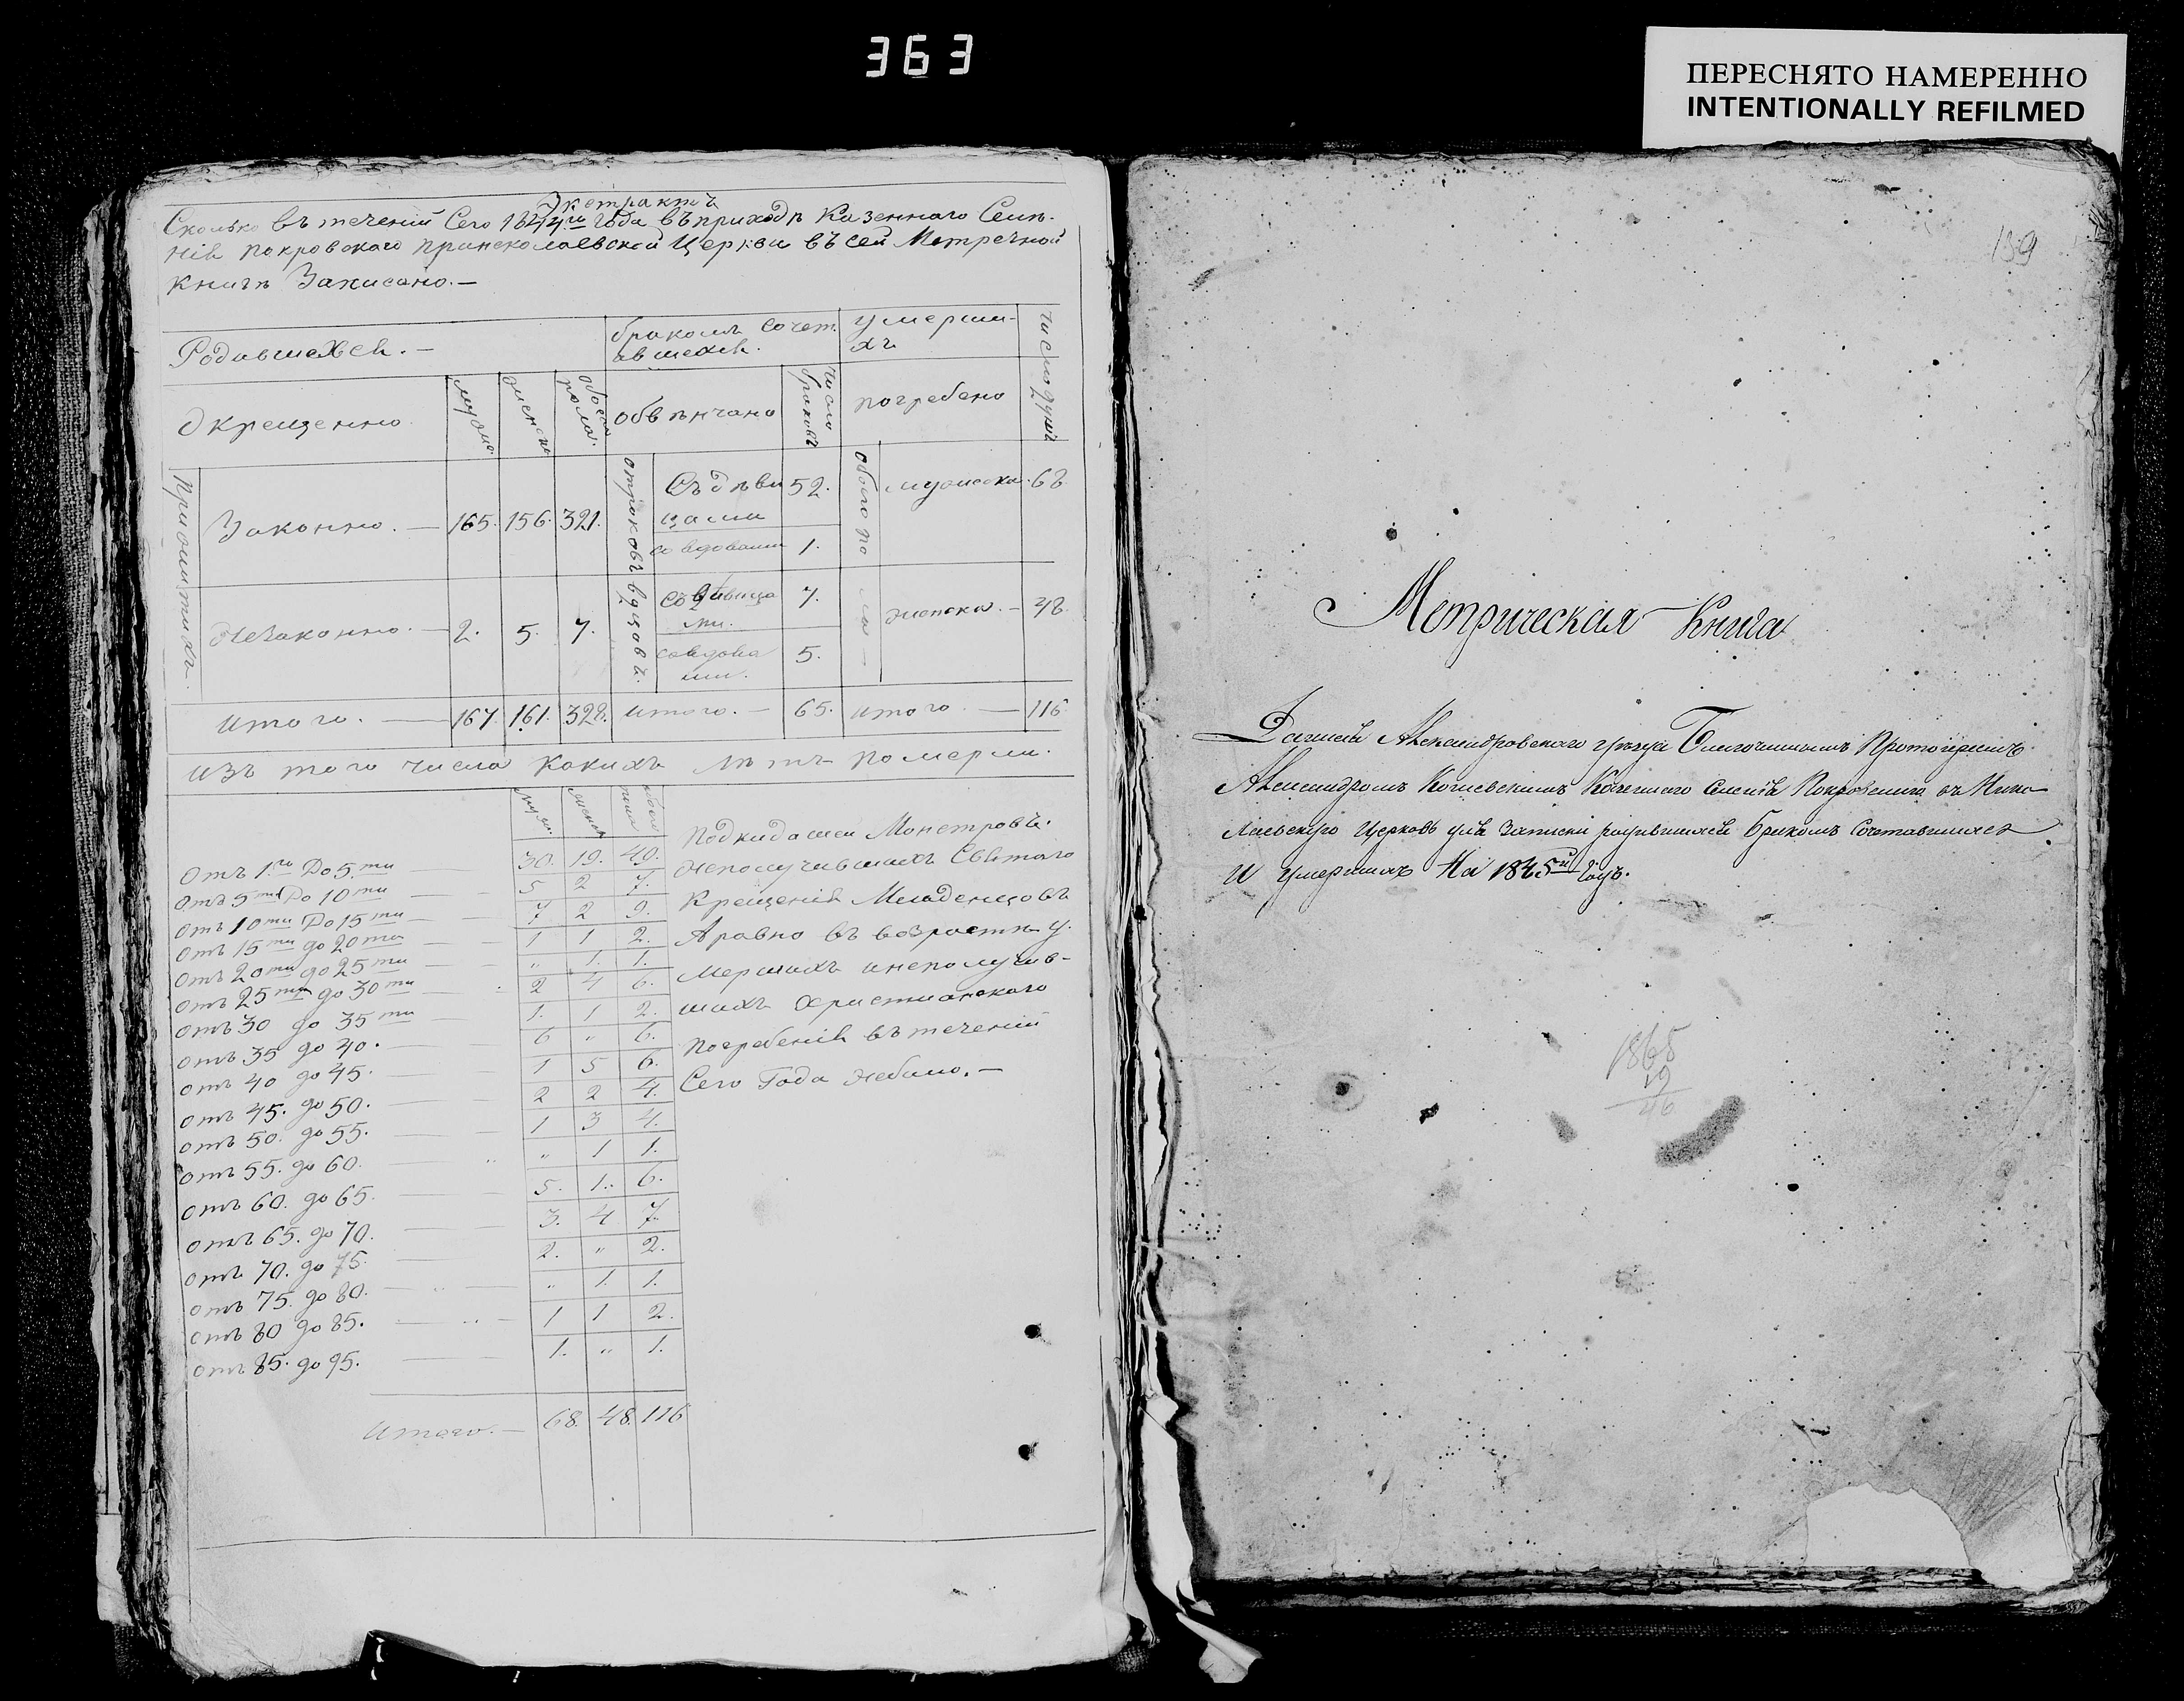 363
ПЕРЕСНЯТО НАМЕРЕННО
INTENTIONALLY REFILMED
Экстрактъ
Сколько въ теченіи Сего 1844го года въ приходѣ Казеннаго Селе-
нія Покровскаго Церкви въ сей Метречной
книгѣ Записано.—
Родившехся.— бракомъ Сочет- умерши- число душъ
авшехся. хъ
Окрещенно мужс. женск. обоего пола. обвѣнчано число браковъ погребено
Прижитихъ Законно.— 165. 156. 321. отроковъ Съ дѣви 52. обоего по мужеска. 68
цами
со вдовами 1.
Незаконно.— 2. 5. 7. вдзовъ Съ дѣвица 7. ла— женска.— 48
ми.
совдова 5.
ми.
итого.— 167. 161. 328. итого.— 65. итого.— 116
изъ того числа какихъ лѣтъ померли.
муж. женск. обоего пола
Отъ 1го До 5ти 30. 19. 49.
Отъ 5ти До 10ти 5 2 7.
Отъ 10ти До 15ти 7 2 9.
Отъ 15ти до 20ти 1 1 2.
Отъ 20ти до 25ти „ 1. 1.
Отъ 25ти до 30ти 2 4 6.
Отъ 30 до 35ти 1. 1 2.
отъ 35 до 40. 6 „ 6.
отъ 40 до 45. 1 5 6.
отъ 45. до 50. 2 2 4.
отъ 50. до 55. 1 3 4.
отъ 55. до 60. „ 1 1.
отъ 60. до 65. 5. 1. 6.
отъ 65. до 70. 3. 4 7.
отъ 70. до 75. 2. „ 2.
отъ 75. до 80. „ 1. 1.
отъ 80 до 85. 1 1 2.
отъ 85. до 95. 1. „ 1.
итого.— 68. 48. 116
Подкидашеи Монстровъ.
Неполучившихъ Святаго
Крещенія Младенцовъ
Аравно въ возрасти у-
мершихъ инеполучив-
шихъ Христианскаго
Погребенія въ теченіи
Сего Года Небыло.—
159
Метрическая Книга
Данная Александровскаго уѣзда Благочиннымъ Протоіереемъ
Александромъ Казеннаго Селенія Покровскаго въ Нико-
лаевскую Церковь для Записки родившихся Бракомъ Сочетавшихся
И Умершихъ На 1845й Годъ.
1868
19
46